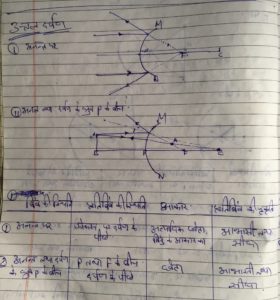 उत्तल दर्पण
① अनन्त पर
M
P
F
C
N
② अनन्त तथा दर्पण के ध्रुव P के बीच
M
N
बिंब की स्थिति प्रतिबिंब की स्थिति आकार प्रतिबिंब की प्रकृति
① अनन्त पर फोकस पर दर्पण के पीछे अत्यधिक छोटा, बिंदु के आकार का आभासी तथा सीधा
② अनन्त तथा दर्पण के ध्रुव P के बीच P तथा F के बीच दर्पण के पीछे छोटा आभासी तथा सीधा